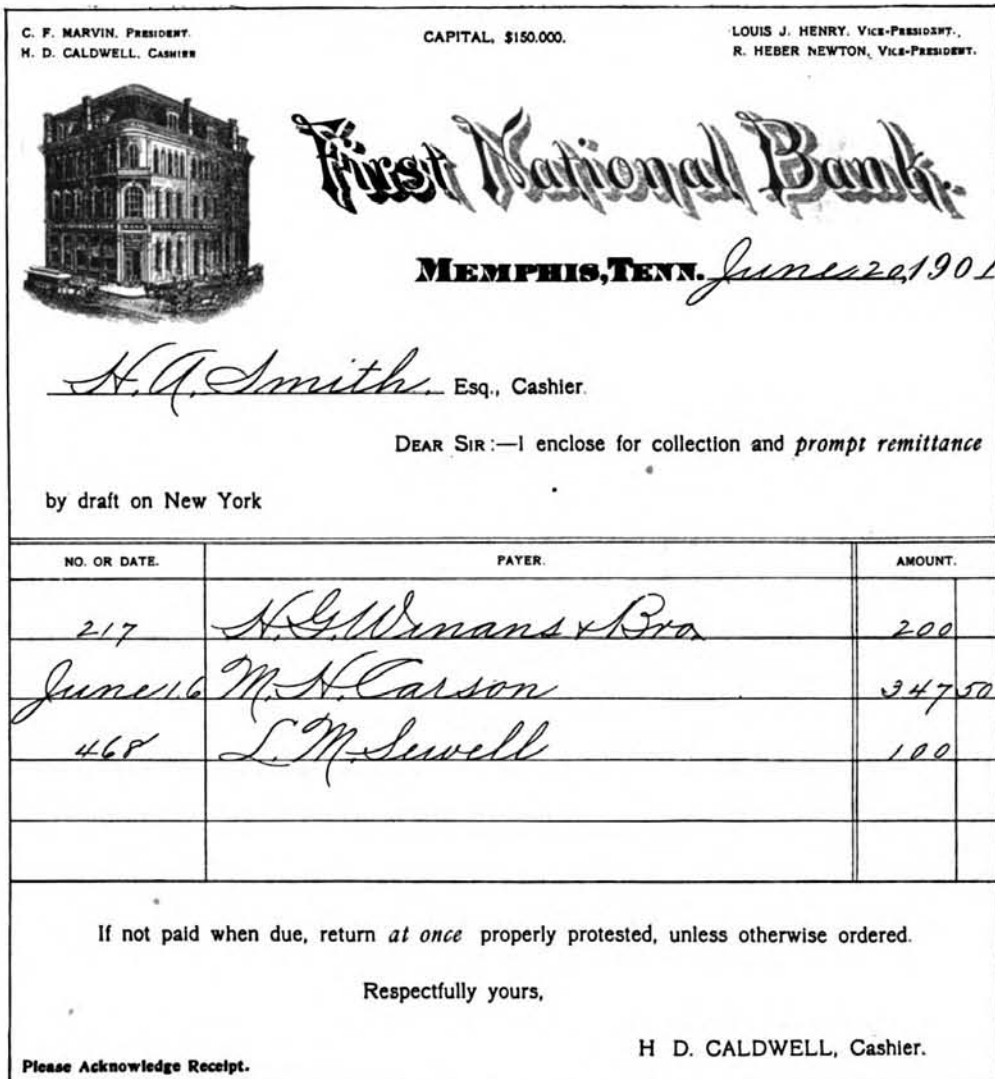 C. F. MARVIN, PRESIDENT.
H. D. CALDWELL, CASHIER
CAPITAL, $150.000.
LOUIS J. HENRY, VICE-PRESIDENT.,
R. HEBER NEWTON, VICE-PRESIDENT.
First National Bank.
MEMPHIS, TENN. June 20, 1901
H. A. Smith. Esq., Cashier.
DEAR SIR:—I enclose for collection and prompt remittance
by draft on New York
NO. OR DATE. PAYER. AMOUNT.
217 H. G. Winans & Bro. 200
June 16 M. H. Carson 347 50
468 L. M. Sewell 100
If not paid when due, return at once properly protested, unless otherwise ordered.
Respectfully yours,
H D. CALDWELL, Cashier.
Please Acknowledge Receipt.